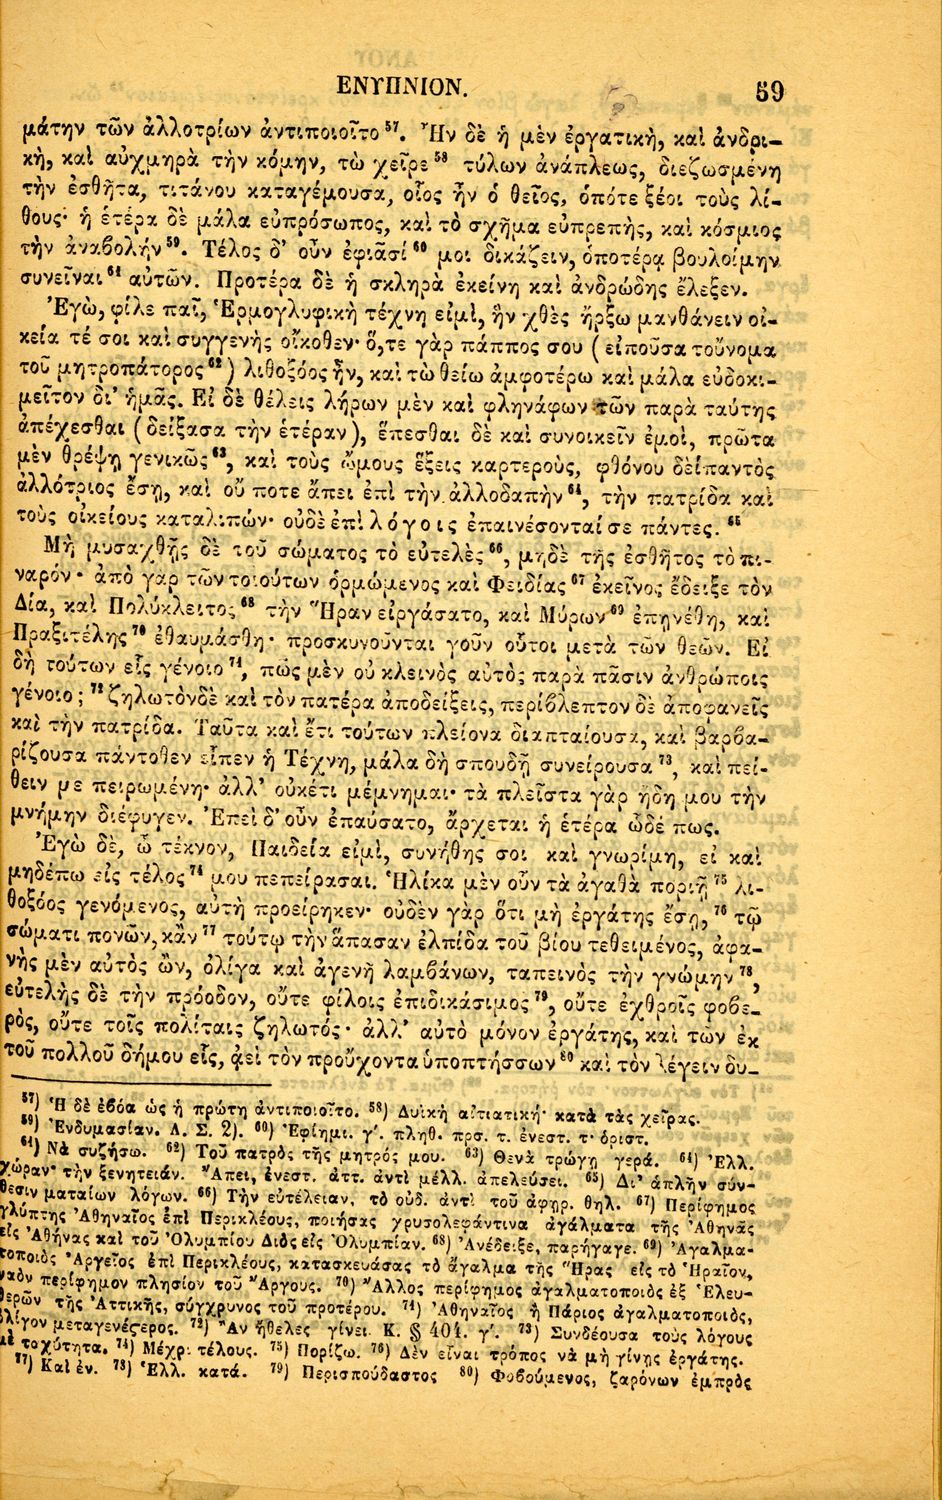 ΕΝΥΠΝΙΟΝ. 59
μάτην τῶν ἀλλοτρίων ἀντιποιοῖτο ⁵⁷. Ἦν δὲ ἡ μὲν ἐργατικὴ, καὶ ἀνδρι–
κὴ, καὶ αὐχμηρὰ τὴν κόμην, τὼ χεῖρε ⁵⁸ τύλων ἀνάπλεως, διεζωσμένη
τὴν ἐσθῆτα, τιτάνου καταγέμουσα, οἷος ἦν ὁ θεῖος, ὁπότε ξέοι τοὺς λί–
θους· ἡ ἑτέρα δὲ μάλα εὐπρόσωπος, καὶ τὸ σχῆμα εὐπρεπὴς, καὶ κόσμιος
τὴν ἀναβολὴν ⁵⁹. Τέλος δ' οὖν ἐφιᾶσί ⁶⁰ μοι δικάζειν, ὁποτέρᾳ βουλοίμην
συνεῖναι ⁶¹ αὐτῶν. Προτέρα δὲ ἡ σκληρὰ ἐκείνη καὶ ἀνδρώδης ἔλεξεν.
Ἐγὼ, φίλε παῖ, Ἑρμογλυφικὴ τέχνη εἰμὶ, ἣν χθὲς ἤρξω μανθάνειν οἰ–
κεία τέ σοι καὶ συγγενὴς οἴκοθεν· ὅ,τε γὰρ πάππος σου (εἰποῦσα τοὔνομα
τοῦ μητροπάτορος ⁶²) λιθοξόος ἦν, καὶ τὼ θείω ἀμφοτέρω καὶ μάλα εὐδοκι–
μεῖτον δι' ἡμᾶς. Εἰ δὲ θέλεις λήρων μὲν καὶ φληνάφων τῶν παρὰ ταύτης
ἀπέχεσθαι (δείξασα τὴν ἑτέραν), ἕπεσθαι δὲ καὶ συνοικεῖν ἐμοὶ, πρῶτα
μὲν θρέψῃ γενικῶς ⁶³, καὶ τοὺς ὤμους ἕξεις καρτεροὺς, φθόνου δὲ παντὸς
ἀλλότριος ἔσῃ, καὶ οὔ ποτε ἄπει ἐπὶ τὴν ἀλλοδαπὴν ⁶⁴, τὴν πατρίδα καὶ
τοὺς οἰκείους καταλιπών· οὐδὲ ἐπὶ λόγοις ἐπαινέσονταί σε πάντες. ⁶⁵
Μὴ μυσαχθῇς δὲ τοῦ σώματος τὸ εὐτελὲς ⁶⁶, μηδὲ τῆς ἐσθῆτος τὸ πι–
ναρόν· ἀπὸ γὰρ τῶν τοιούτων ὁρμώμενος καὶ Φειδίας ⁶⁷ ἐκεῖνος ἔδειξε τὸν
Δία, καὶ Πολύκλειτος ⁶⁸ τὴν Ἥραν εἰργάσατο, καὶ Μύρων ⁶⁹ ἐπῃνέθη, καὶ
Πραξιτέλης ⁷⁰ ἐθαυμάσθη· προσκυνοῦνται γοῦν οὗτοι μετὰ τῶν θεῶν. Εἰ
δὴ τούτων εἷς γένοιο ⁷¹, πῶς μὲν οὐ κλεινὸς αὐτὸς παρὰ πᾶσιν ἀνθρώποις
γένοιο; ⁷² ζηλωτὸν δὲ καὶ τὸν πατέρα ἀποδείξεις, περίβλεπτον δὲ ἀποφανεῖς
καὶ τὴν πατρίδα. Ταῦτα καὶ ἔτι τούτων πλείονα διαπταίουσα, καὶ βαρβα–
ρίζουσα πάντοθεν εἶπεν ἡ Τέχνη, μάλα δὴ σπουδῇ συνείρουσα ⁷³, καὶ πεί–
θειν με πειρωμένη· ἀλλ' οὐκέτι μέμνημαι· τὰ πλεῖστα γὰρ ἤδη μου τὴν
μνήμην διέφυγεν. Ἐπεὶ δ' οὖν ἐπαύσατο, ἄρχεται ἡ ἑτέρα ὧδέ πως.
Ἐγὼ δὲ, ὦ τέκνον, Παιδεία εἰμὶ, συνήθης σοι καὶ γνωρίμη, εἰ καὶ
μηδέπω εἰς τέλος ⁷⁴ μου πεπείρασαι. Ἡλίκα μὲν οὖν τὰ ἀγαθὰ ποριῇ ⁷⁵ λι–
θοξόος γενόμενος, αὐτὴ προείρηκεν· οὐδὲν γὰρ ὅτι μὴ ἐργάτης ἔσῃ, ⁷⁶ τῷ
σώματι πονῶν, κἂν ⁷⁷ τούτῳ τὴν ἅπασαν ἐλπίδα τοῦ βίου τεθειμένος, ἀφα–
νὴς μὲν αὐτὸς ὢν, ὀλίγα καὶ ἀγενῆ λαμβάνων, ταπεινὸς τὴν γνώμην ⁷⁸,
εὐτελὴς δὲ τὴν πρόοδον, οὔτε φίλοις ἐπιδικάσιμος ⁷⁹, οὔτε ἐχθροῖς φοβε–
ρὸς, οὔτε τοῖς πολίταις ζηλωτός· ἀλλ' αὐτὸ μόνον ἐργάτης, καὶ τῶν ἐκ
τοῦ πολλοῦ δήμου εἷς, ἀεὶ τὸν προὔχοντα ὑποπτήσσων ⁸⁰ καὶ τὸν λέγειν δυ–
⁵⁷) Ἡ δὲ ἐβόα ὡς ἡ πρώτη ἀντιποιοῖτο. ⁵⁸) Δυϊκὴ αἰτιατική· κατὰ τὰς χεῖρας.
⁵⁹) Ἐνδυμασίαν. Λ. Σ. 2). ⁶⁰) Ἐφίημι. γ'. πληθ. πρσ. τ. ἐνεστ. τ· ὁριστ.
⁶¹) Νὰ συζήσω. ⁶²) Τοῦ πατρὸς τῆς μητρός μου. ⁶³) Θενὰ τρώγῃ γερά. ⁶⁴) Ἑλλ.
χώραν· τὴν ξενητειάν. Ἄπει, ἐνεστ. ἀττ. ἀντὶ μέλλ. ἀπελεύσει. ⁶⁵) Δι' ἁπλῆν σύν–
θεσιν ματαίων λόγων. ⁶⁶) Τὴν εὐτέλειαν, τὸ οὐδ. ἀντὶ τοῦ ἀφῃρ. θηλ. ⁶⁷) Περίφημος
γλύπτης Ἀθηναῖος ἐπὶ Περικλέους, ποιήσας χρυσολεφάντινα ἀγάλματα τῆς Ἀθηνᾶς
εἰς Ἀθήνας καὶ τοῦ Ὀλυμπίου Διὸς εἰς Ὀλυμπίαν. ⁶⁸) Ἀνέδειξε, παρήγαγε. ⁶⁹) Ἀγαλμα–
τοποιὸς Ἀργεῖος ἐπὶ Περικλέους, κατασκευάσας τὸ ἄγαλμα τῆς Ἥρας εἰς τὸ Ἡραῖον,
ναὸν περίφημον πλησίον τοῦ Ἄργους. ⁷⁰) Ἄλλος περίφημος ἀγαλματοποιὸς ἐξ Ἐλευ–
θερῶν τῆς Ἀττικῆς, σύγχρονος τοῦ προτέρου. ⁷¹) Ἀθηναῖος ἢ Πάριος ἀγαλματοποιὸς,
ὀλίγον μεταγενέστερος. ⁷²) Ἂν ἤθελες γίνει Κ. § 404. γ'. ⁷³) Συνδέουσα τοὺς λόγους
μὲ ταχύτητα. ⁷⁴) Μέχρι τέλους. ⁷⁵) Πορίζω. ⁷⁶) Δὲν εἶναι τρόπος νὰ μὴ γίνῃς ἐργάτης.
⁷⁷) Καὶ ἐν. ⁷⁸) Ἑλλ. κατά. ⁷⁹) Περισπούδαστος ⁸⁰) Φοβούμενος, ζαρόνων ἐμπρὸς